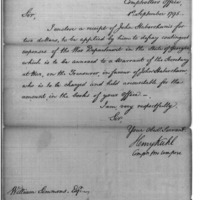 Comptrollers Office
1st September 1795.
Sir,
I enclose a receipt of John Habersham's for
two dollars, to be applied by him to defray contingent
expences of the War Department in the State of Georgia
which is to be annexed to a warrant of the Secretary
at War, on the Treasurer, in favor of John Habersham
who is to be charged and held accountable for the
amount, in the books of your office.
I am, very respectfully,
Sir,
Your Obed Servant
Henry Kuhl
William Simmons Esqr.